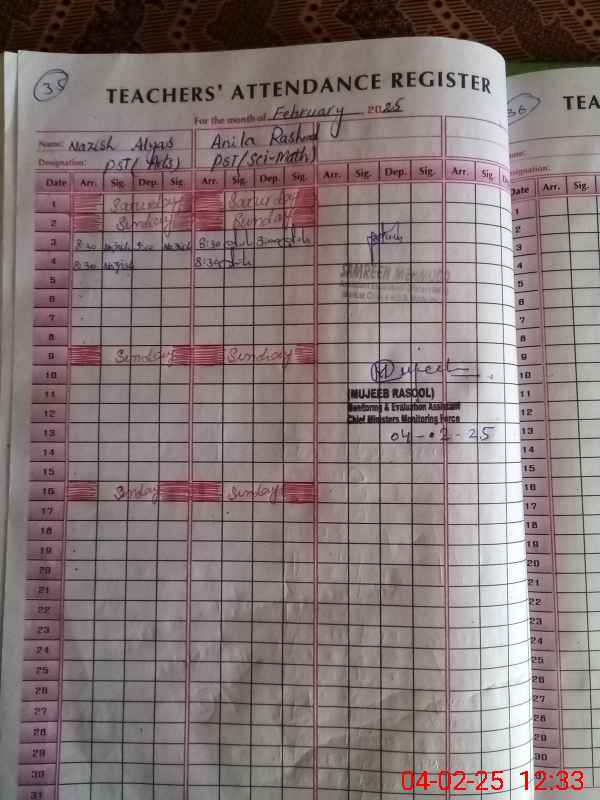 35
TEACHERS' ATTENDANCE REGISTER
For the month of February 2025
Name: Nazish Alyas Anila Rashid
Designation: PST( Arts) PST(Sci-Math)
Date Arr. Sig. Dep. Sig. Arr. Sig. Dep. Sig. Arr. Sig. Dep. Sig. Arr. Sig.
1 Saturday Saturday
2 Sunday Sunday
3 8:30 Nazish Nazish 8:30
4 8:30 Nazish 8:30
5 SAMREEN MEHMOOD
6
7
8
9 Sunday Sunday
10 Mujeeb
11 (MUJEEB RASOOL)
12 Monitoring & Evaluation Assistant
Chief Ministers Monitoring Force
13 04-02-25
14
15
16 Sunday Sunday
17
18
19
20
21
22
23
24
25
26
27
28
29
30
31
36
TEA
Date Arr. Sig.
1
2
3
4
5
6
7
8
9
10
11
12
13
14
15
16
17
18
19
20
21
22
23
24
25
26
27
28
29
30
04-02-25 12:33